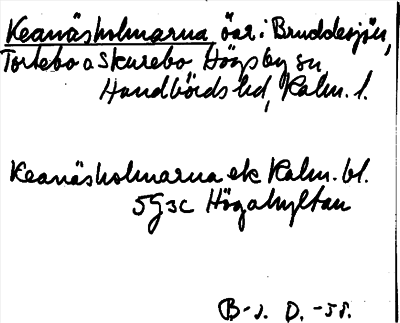 Keanäsholmarna öar i Bruddesjön,
Tortebo o Skurebo Högsby sn
Handbörds hd, Kalm. l.
Keanäsholmarna ek Kalm. bl.
5G3c Högahyltan
B-s. D. -58.